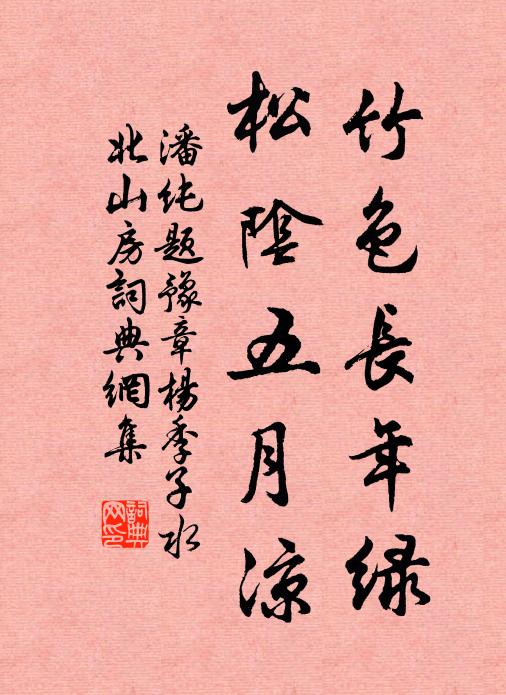 竹色長年緑
松陰五月凉
潘純题豫章楊季子水
北山房詞典網集
詞典网印